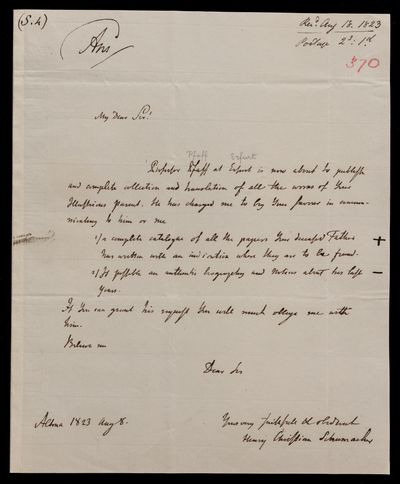 (S.4)
Recd. Aug 18. 1823
Postage 2s. 1d
Ansd
370
My Dear Sir!
Pfaff Erfurt
Professor Pfaff at Erfurt is now about to publish
and complete collection and translation of all the works of Your
Illustrious parent. He has charged me to beg Your favour in commu-
nicating to him or me
1) a complete catalogue of all the papers Your deceased Father +
has written with an indication where they are to be found.
2) If possible an authentic biography and notices about his last —
years.
If You can grant his request You will much oblige me with
him.
Believe me
Dear Sir
Altona 1823 Aug 8.
Your very faithful & obedient
Henry Christian Schumacher